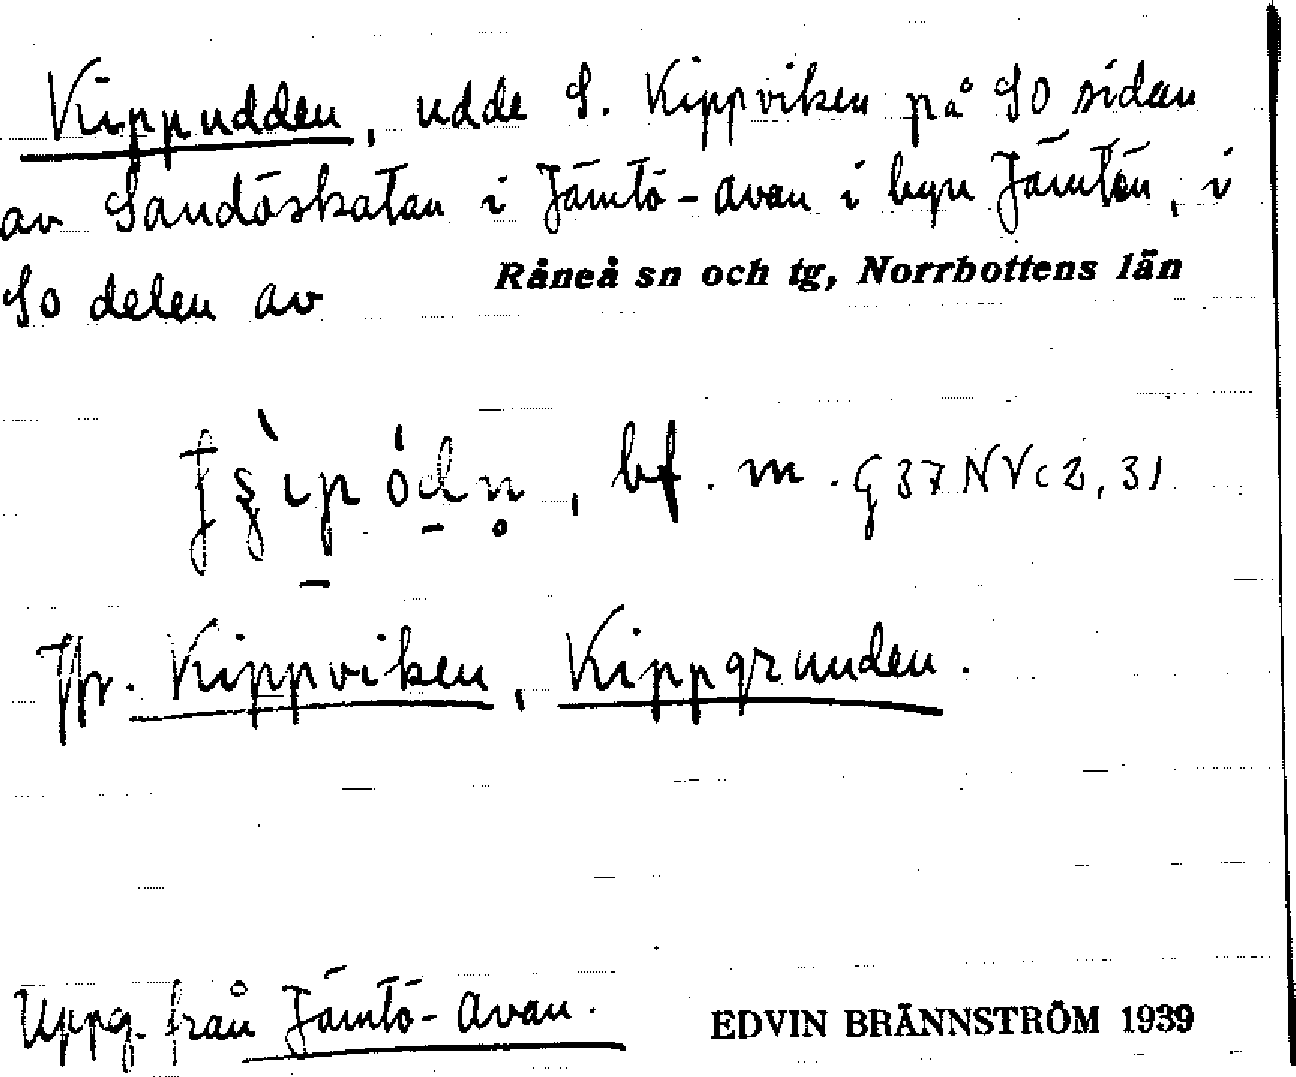 Kippudden, udde S. Kippviken på SO sidan
av Sandöskatan i Jämtö-avan i byn Jämtön, i
SO delen av Råneå sn och tg, Norrbottens län
bf. m. G 37 NV c 2, 31
Jfr. Kippviken, Kippgrunden.
Uppg. från Jämtö-avan. EDVIN BRÄNNSTRÖM 1939